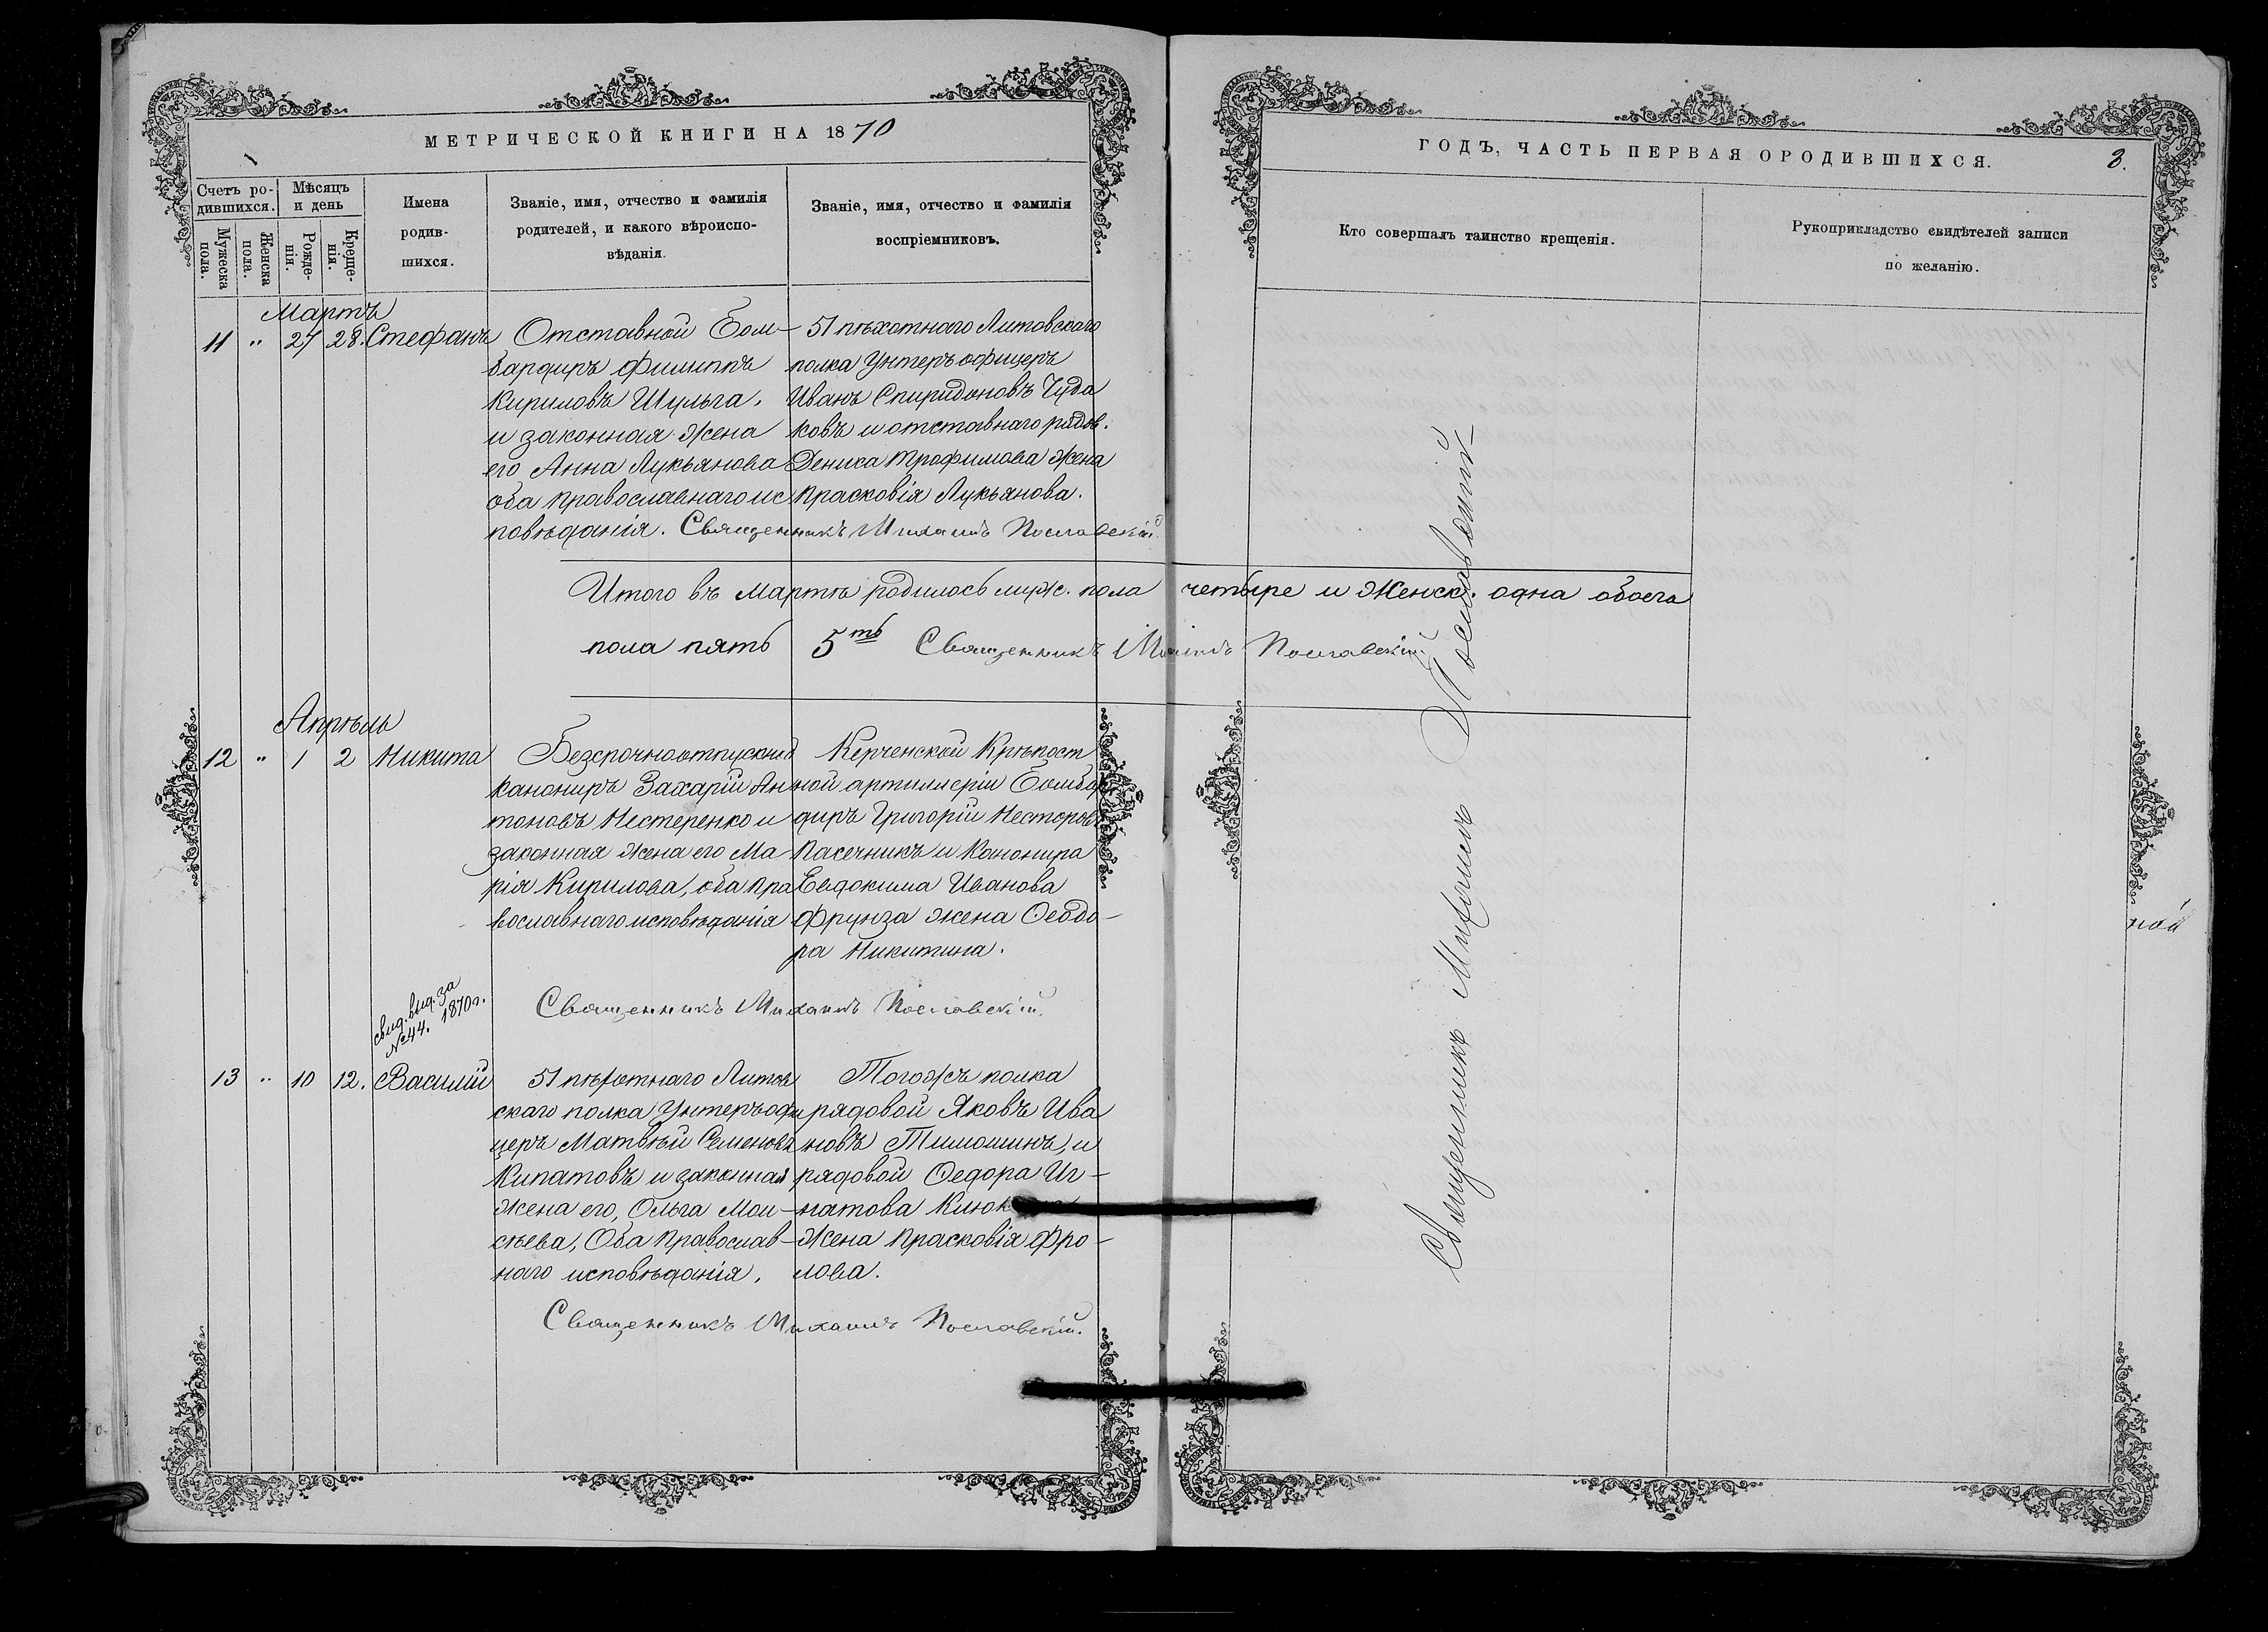 МЕТРИЧЕСКОЙ КНИГИ НА 1870
ГОДЪ, ЧАСТЬ ПЕРВАЯ О РОДИВШИХСЯ.
3.
Счетъ ро-
дившихся.
Мужеска
пола.
Женска
пола.
Мѣсяцъ
и день
Рожде-
нія.
Креще-
нія.
Имена
родив-
шихся.
Званіе, имя, отчество и фамилія
родителей, и какого вѣроиспо-
вѣданія.
Званіе, имя, отчество и фамилія
воспріемниковъ.
Кто совершалъ таинство крещенія.
Рукоприкладство свидѣтелей записи
по желанію.
Мартъ
11 " 27 28. Стефанъ
Отставной Бом-
бардиръ Филиппъ
Кириловъ Шульга,
и законная жена
его Анна Лукьянова
оба православнаго ис
повѣданія.
51 пѣхотнаго Литовскаго
полка Унтеръ офицеръ
Иванъ Спиридоновъ Чуда
ковъ и отставнаго рядов.
Дениса Трофимова жена
Прасковія Лукьянова.
Священникъ Михаилъ Пославскій
Итого въ Мартѣ родилось муж. пола четыре и Женск. одна обоего
пола пять 5ть Священникъ Михаилъ Пославскій
Апрѣль
12 " 1 2 Никита
Безсрочноотпускной
канониръ Захарій Ан
тоновъ Нестеренко и
законная жена его Ма
рія Кирилова, оба пра
вославнаго исповѣданія
Керченской Крѣпост
ной артиллеріи Бомбар
диръ Григорій Несторовъ
Пасечникъ и Канонира
Евдокима Иванова
Фрунза жена Ѳеодо-
ра Никитина.
Священникъ Михаилъ Пославскій.
свид. выд. за
№ 44. 1870 г.
13 " 10 12. Василій
51 пѣхотнаго Литов
скаго полка Унтеръ офи
церъ Матвѣй Семеновъ
Кипатовъ и законная
жена его, Ольга Мои-
сѣева, Оба Православ-
наго исповѣданія,
Тогожъ полка
рядовой Яковъ Ива
новъ Тимошинъ, и
рядовой Ѳедора Иг-
натова
Жена Прасковія Фро-
лова.
Священникъ Михаилъ Пославскій.
Священникъ Михаилъ Пославскій
ной